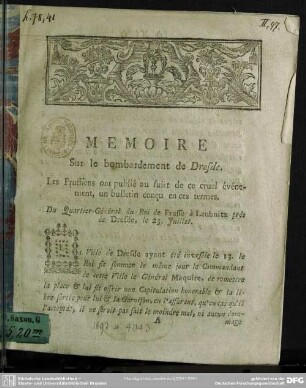 MEMOIRE
Sur le bombardement de Dresde.
Les Prussiens ont publié au sujet de ce cruel événe-
ment, un bulletin conçu en ces termes.
Du Quartier-Général du Roi de Prusse à Leubnitz près
de Dresde, le 23. Juillet.
Ville de Dresde ayant été investie le 13. le
Roi fit sommer le même jour le Commandant
de cette Ville le Général Maquire, de remettre
la place & lui fit offrir une Capitulation honorable & la li-
bre sortie pour lui & la Garnison, en l'assurant, qu'en cas qu'il
l'acceptât, il ne seroit pas fait le moindre mal, ni aucun dom-
A
mage